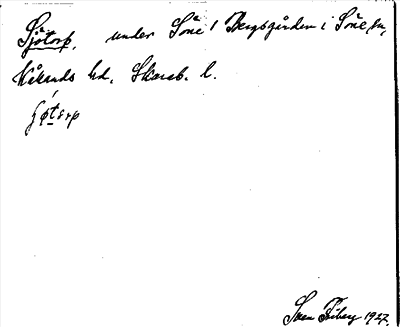 Sjötorp, under Såne 1 Bergsgården i Såne sn,
Kåkinds hd, Skarab. l.
Sven Friberg 1927.